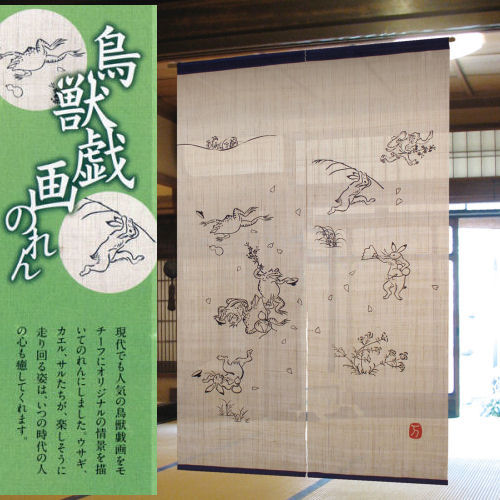 鳥獣戯画のれん
現代でも人気の鳥獣戯画をモ
チーフにオリジナルの情景を描
いてのれんにしました。ウサギ、
カエル、サルたちが、楽しそうに
走り回る姿は、いつの時代の人
の心も癒してくれます。
万